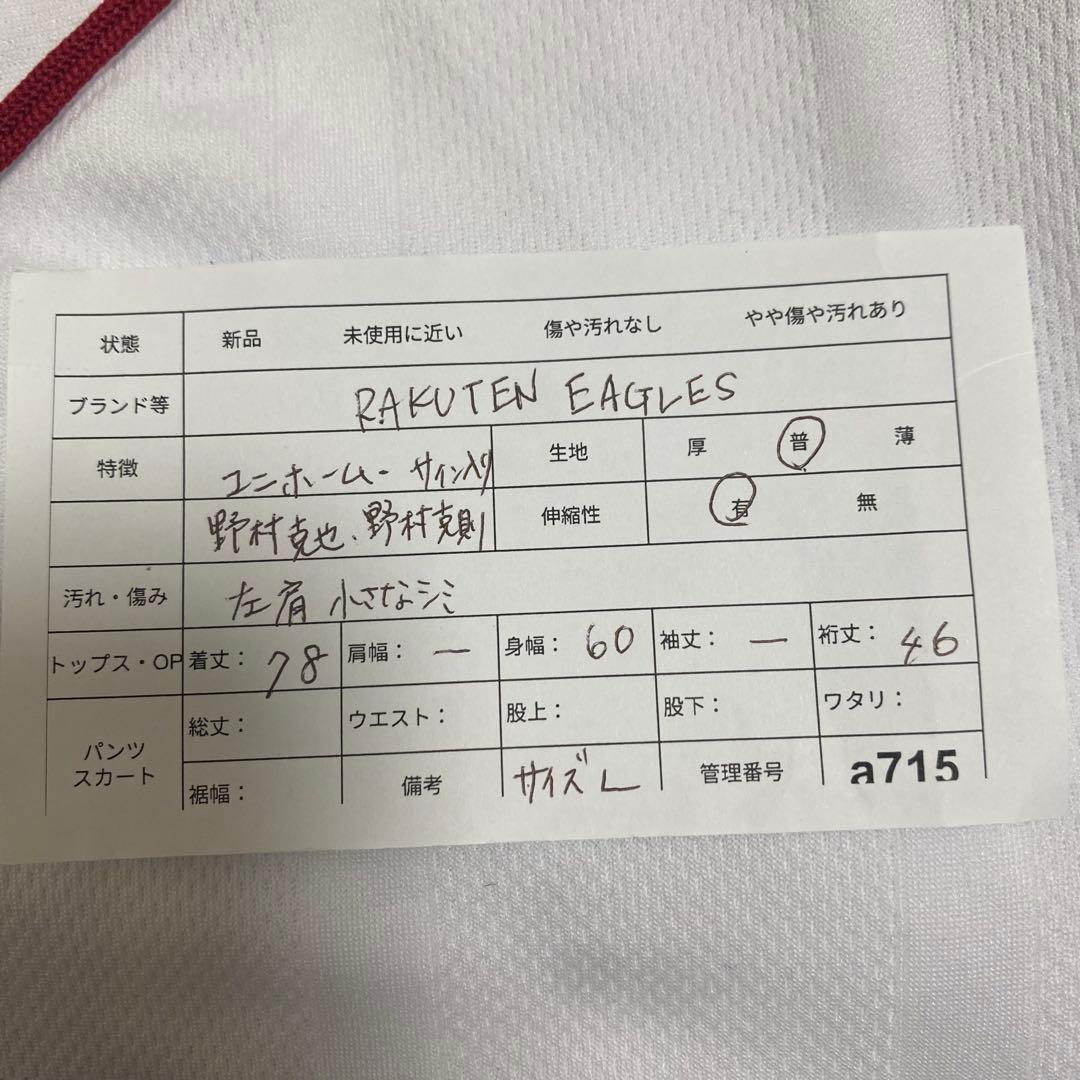 状態 新品 未使用に近い 傷や汚れなし やや傷や汚れあり
ブランド等 RAKUTEN EAGLES
特徴 ユニホーム- サイン入り 生地 厚 普 薄
野村克也、野村克則 伸縮性 有 無
汚れ・傷み 左肩 小さなシミ
トップス・OP 着丈: 78 肩幅: ー 身幅: 60 袖丈: ー 裄丈: 46
パンツ スカート 総丈: ウエスト: 股上: 股下: ワタリ:
裾幅: 備考 サイズ L 管理番号 a715